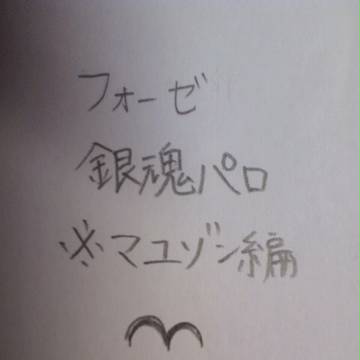 フォーゼ
銀魂パロ
※マユゾン編